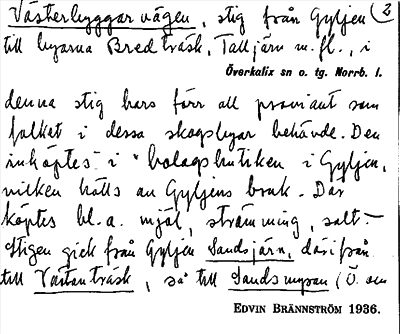 Västerbyggarvägen, stig från Gyljen (2
till byarna Bredträsk, Talljärn m.fl., i
Överkalix sn o. tg. Norrb. l.
denna stig bars förr all proviant som
folket i dessa skogsbyar behövde. Den
inköptes i "bolagsbutiken i Gyljen,
vilken hölls av Gyljens bruk. Där
köptes bl.a. mjöl, strömming, salt.-
Stigen gick från Gyljen Sandsjärn, därifrån
till Västanträsk, så till Sandsmyran (Ö. om
EDVIN BRÄNNSTRÖM 1936.